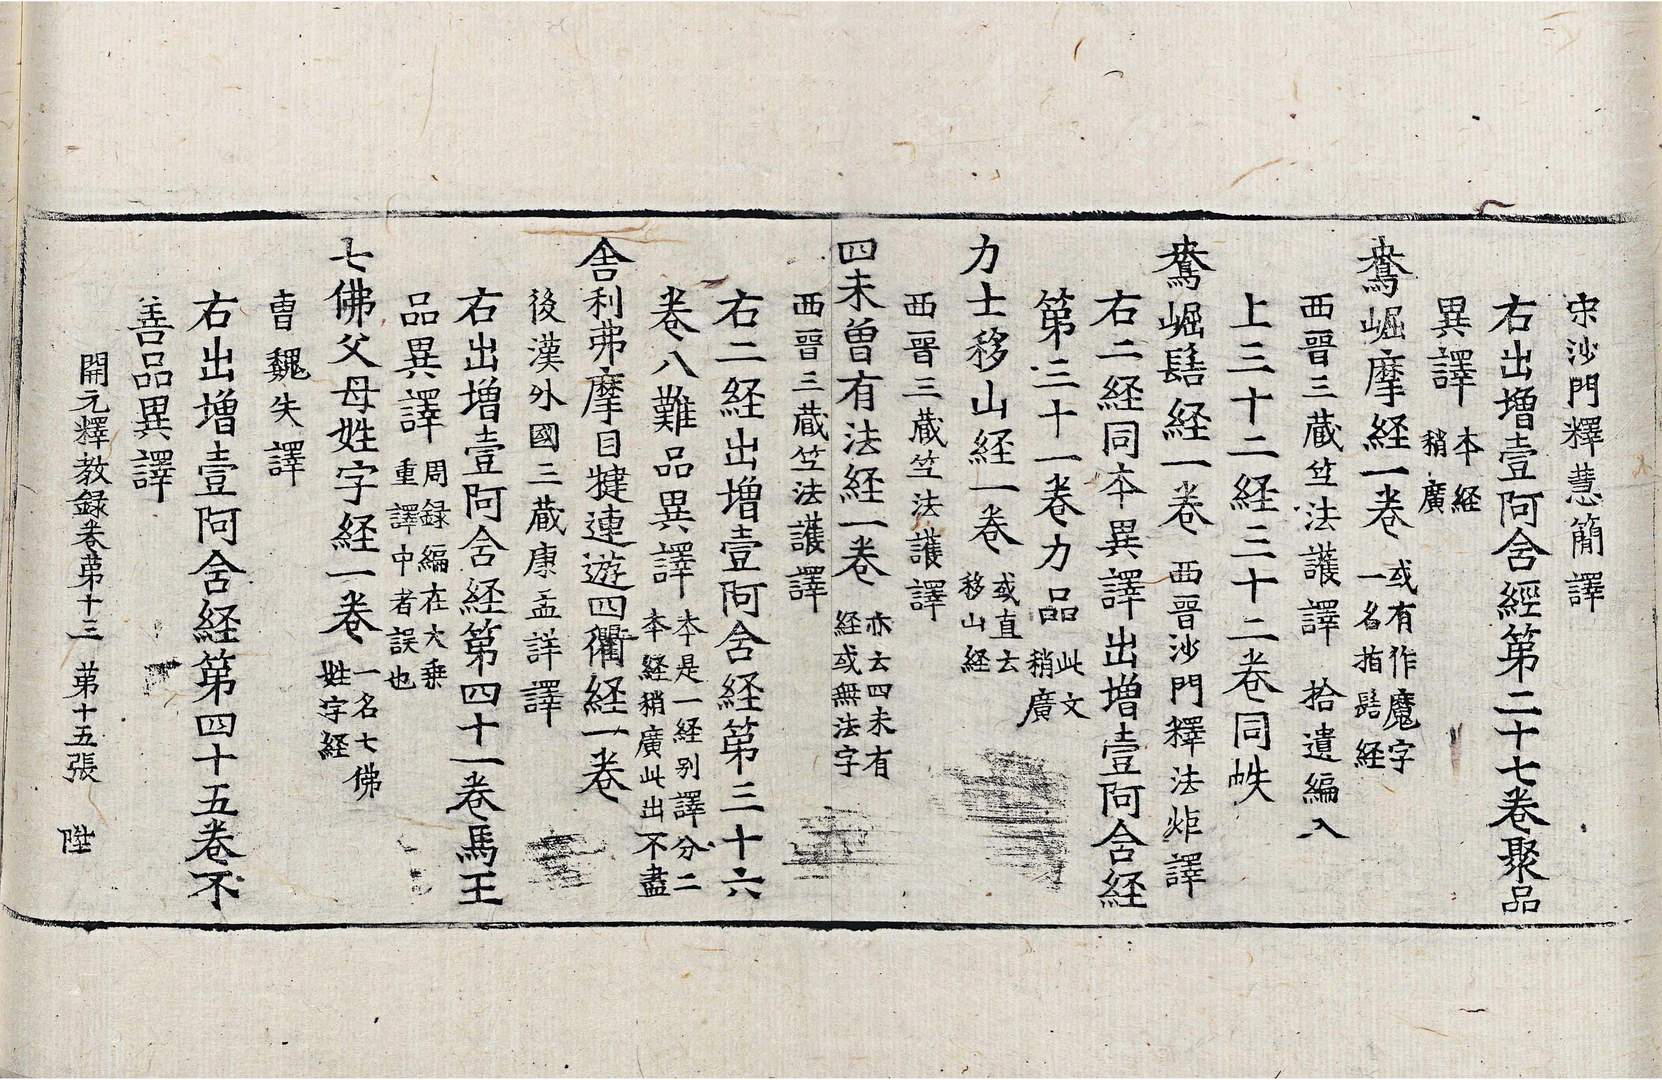 宋沙門釋慧簡譯
右出增壹阿含經第二十七卷聚品
異譯 本経稍廣
鴦崛摩経一卷 或有作魔字一名指髻経
西晉三蔵竺法護譯 拾遺編入
上三十二経三十二卷同帙
鴦崛髻経一卷 西晉沙門釋法炬譯
右二経同本異譯出增壹阿含経
第三十一卷力品 此文稍廣
力士移山経一卷 或直云移山経
西晉三蔵竺法護譯
四未曽有法経一卷 亦云四未有経或無法字
西晉三蔵竺法護譯
右二経出增壹阿含経第三十六
卷八難品異譯 本是一経别譯分二本経稍廣此出不盡
舎利弗摩目揵連遊四衢経一卷
後漢外國三蔵康孟詳譯
右出增壹阿含経第四十一卷馬王
品異譯 周録編在大乗重譯中者誤也
七佛父母姓字経一卷 一名七佛姓字経
曹魏失譯
右出增壹阿含経第四十五卷不
善品異譯
開元釋教録卷苐十三 苐十五張 陞